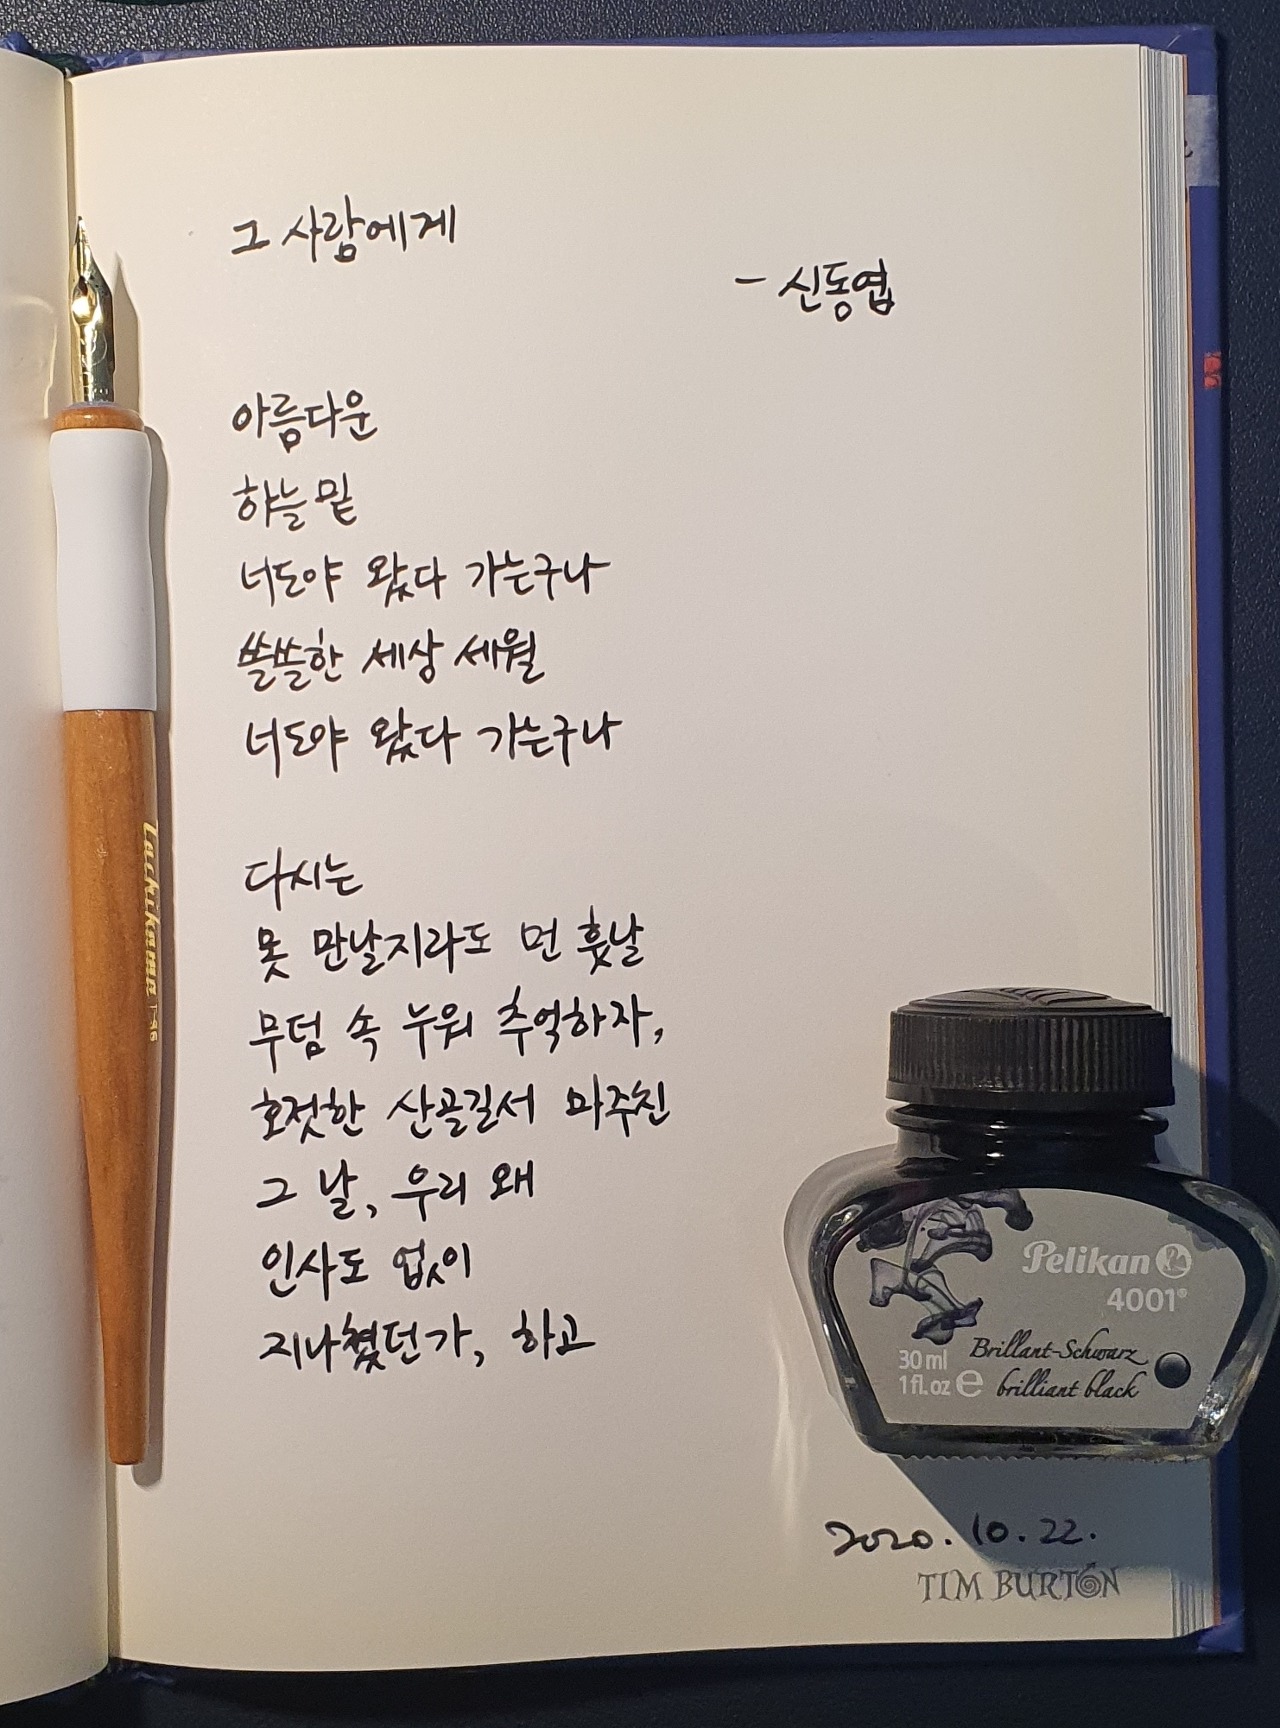 그 사람에게
- 신동엽
아름다운
하늘 밑
너도야 왔다 가는구나
쓸쓸한 세상 세월
너도야 왔다 가는구나
다시는
못 만날지라도 먼 훗날
무덤 속 누워 추억하자,
호젓한 산골길서 마주친
그 날, 우리 왜
인사도 없이
지나쳤던가, 하고
Tachikawa T-36
Pelikan
4001®
30 ml
1 fl. oz e
Brillant-Schwarz
brilliant black
2020. 10. 22.
TIM BURTON